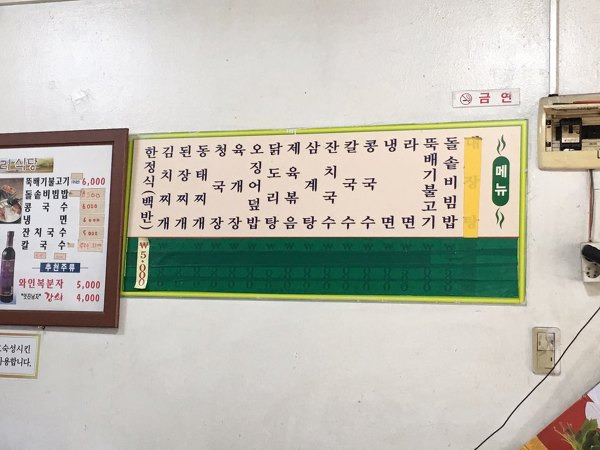 금연
메뉴
돌솥비빔밥
뚝배기불고기
라면
냉면
콩국수
칼국수
잔치국수
삼계탕
제육볶음
닭도리탕
오징어덮밥
육개장
청국장
동태찌개
된장찌개
김치찌개
한정식(백반)
₩5,000
리식당
뚝배기불고기 6,000
돌솥비빔밥
콩국수 6000
냉면 6000
잔치국수 5000
칼국수
추천주류
와인복분자 5,000
강쇠 4,000
숙성시킨
용합니다.